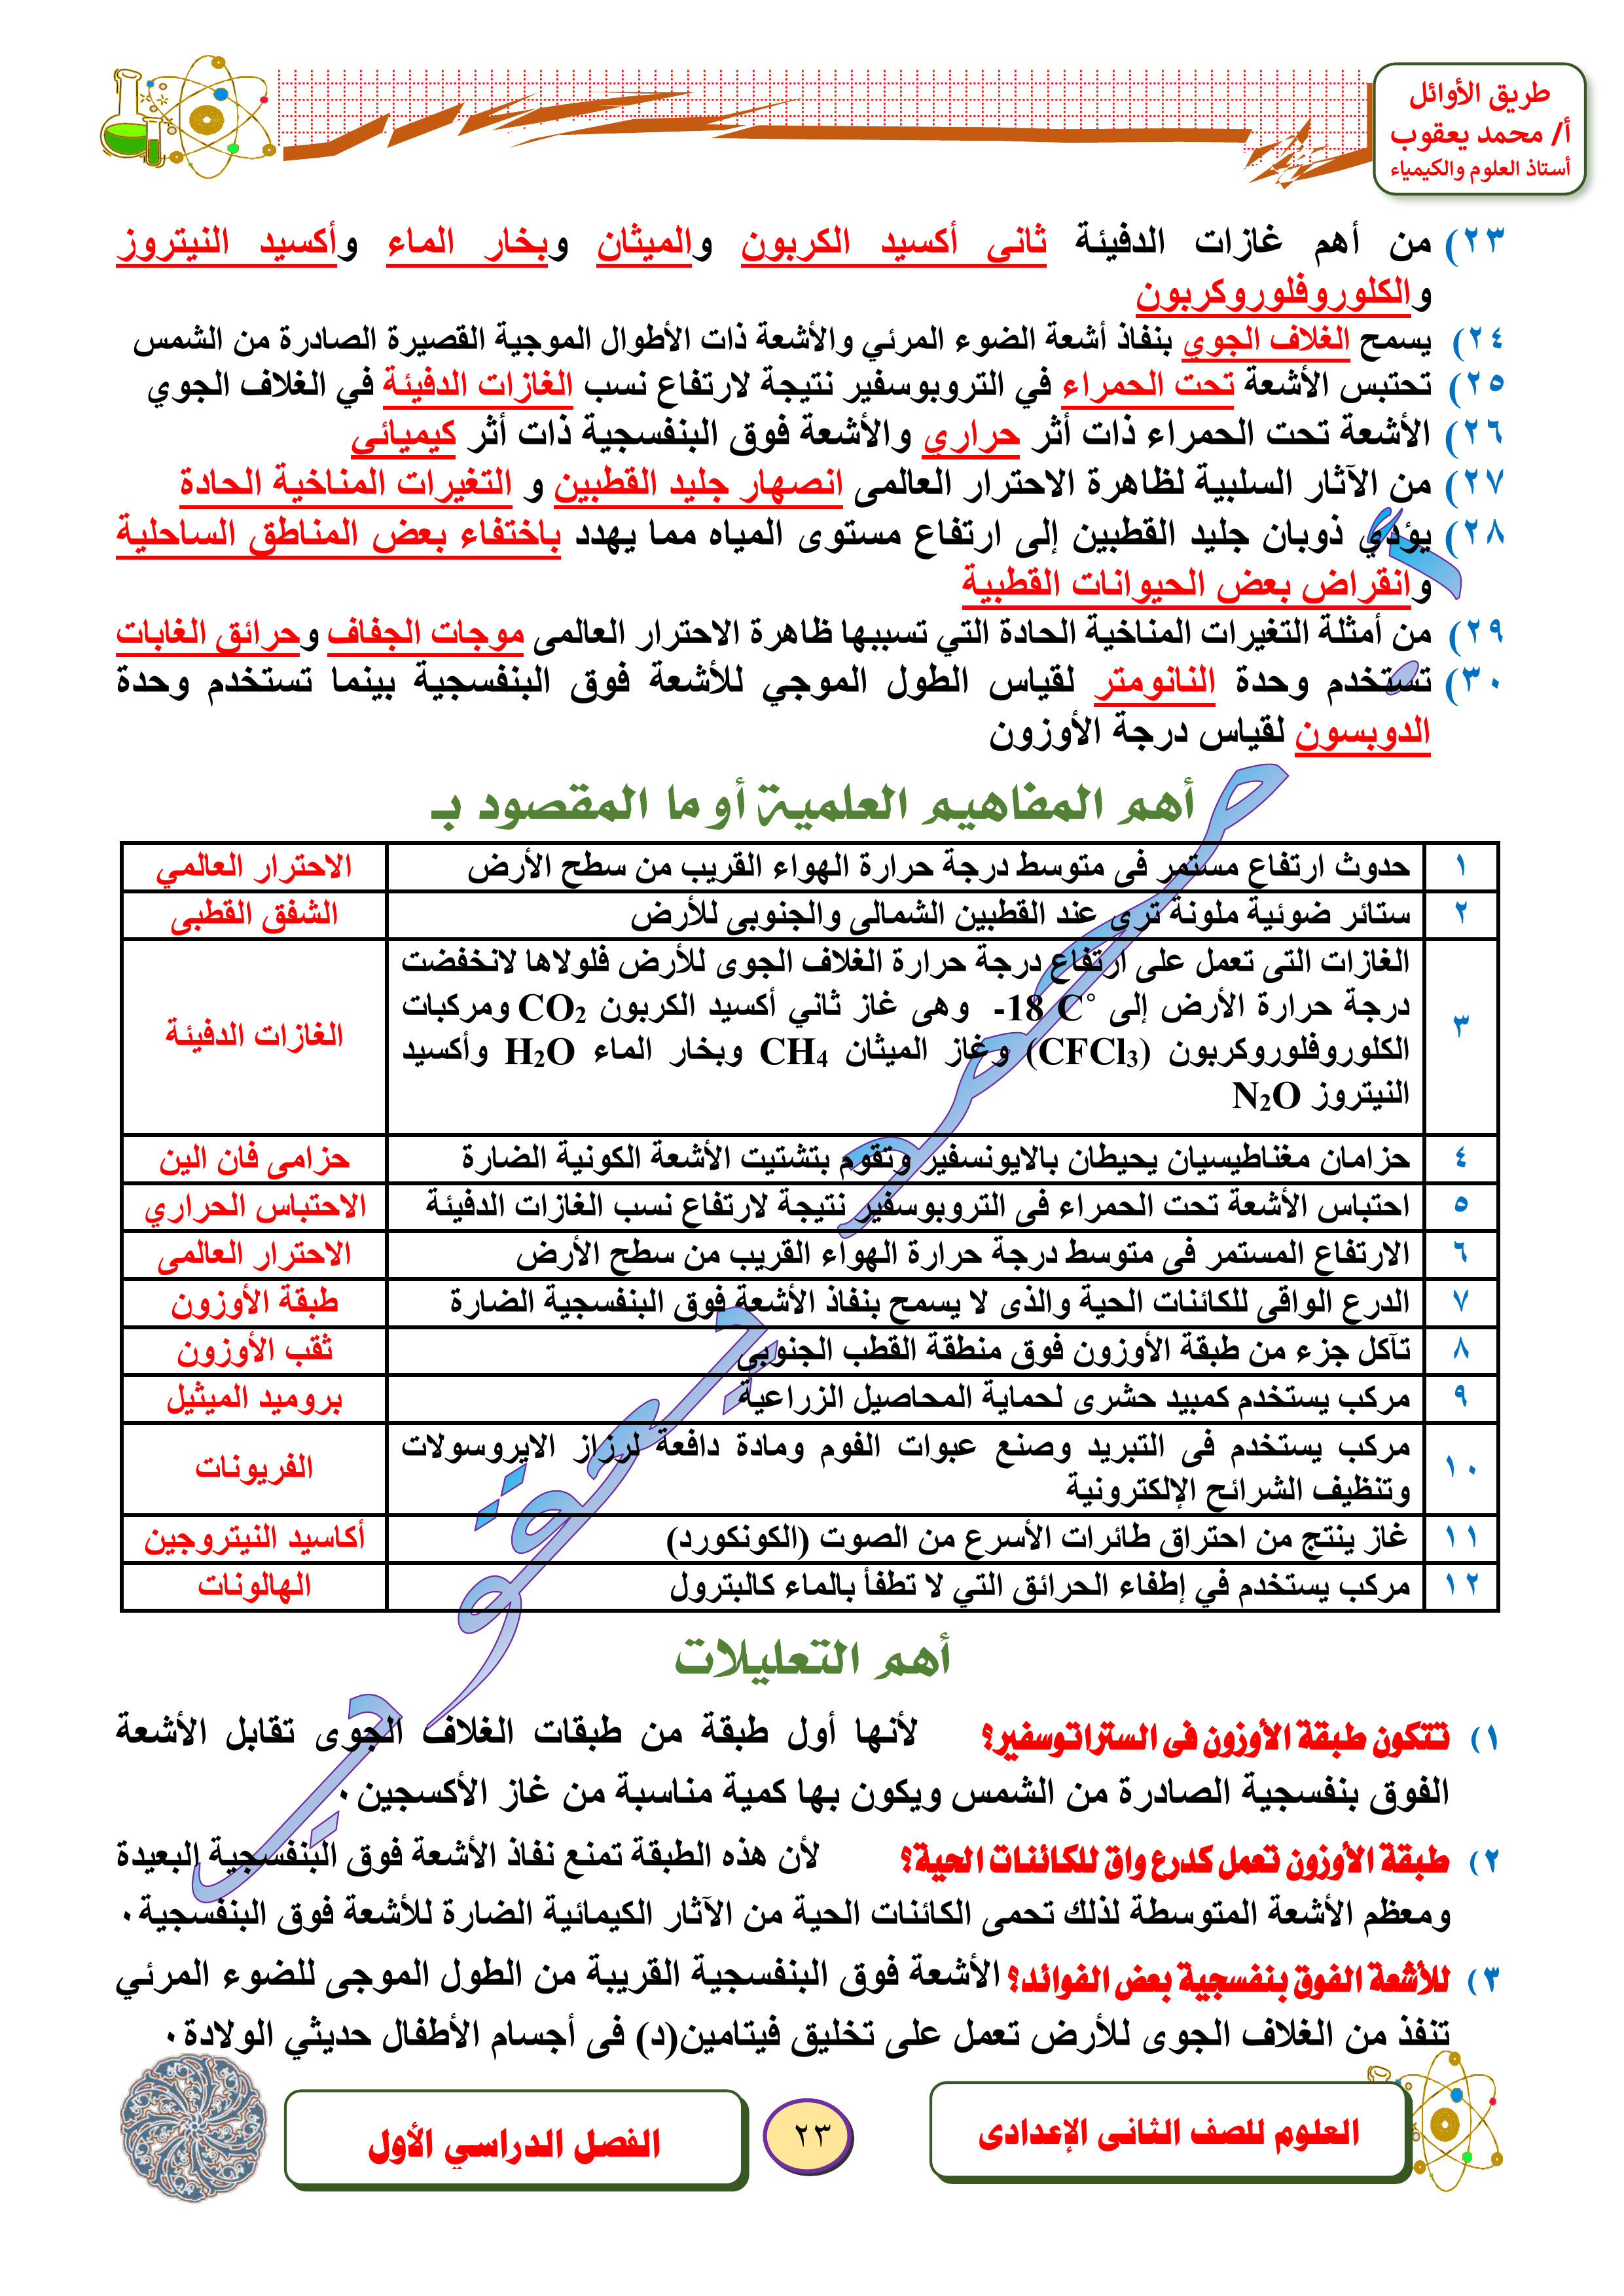 طريق الأوائل
أ/ محمد يعقوب
أستاذ العلوم والكيمياء
٢٣) من أهم غازات الدفيئة ثانى أكسيد الكربون والميثان وبخار الماء وأكسيد النيتروز
والكلوروفلوروكربون
٢٤) يسمح الغلاف الجوي بنفاذ أشعة الضوء المرئي والأشعة ذات الأطوال الموجية القصيرة الصادرة من الشمس
٢٥) تحتبس الأشعة تحت الحمراء في التروبوسفير نتيجة لارتفاع نسب الغازات الدفيئة في الغلاف الجوي
٢٦) الأشعة تحت الحمراء ذات أثر حراري والأشعة فوق البنفسجية ذات أثر كيميائي
٢٧) من الآثار السلبية لظاهرة الاحترار العالمى انصهار جليد القطبين و التغيرات المناخية الحادة
٢٨) يؤدي ذوبان جليد القطبين إلى ارتفاع مستوى المياه مما يهدد باختفاء بعض المناطق الساحلية
وانقراض بعض الحيوانات القطبية
٢٩) من أمثلة التغيرات المناخية الحادة التي تسببها ظاهرة الاحترار العالمى موجات الجفاف وحرائق الغابات
٣٠) تستخدم وحدة النانومتر لقياس الطول الموجي للأشعة فوق البنفسجية بينما تستخدم وحدة
الدوبسون لقياس درجة الأوزون
أهم المفاهيم العلمية أو ما المقصود بـ
١ حدوث ارتفاع مستمر فى متوسط درجة حرارة الهواء القريب من سطح الأرض الاحترار العالمي
٢ ستائر ضوئية ملونة ترى عند القطبين الشمالى والجنوبى للأرض الشفق القطبى
٣ الغازات التى تعمل على ارتفاع درجة حرارة الغلاف الجوى للأرض فلولاها لانخفضت
درجة حرارة الأرض إلى -18 C° وهى غاز ثاني أكسيد الكربون CO2 ومركبات
الكلوروفلوروكربون (CFCl3) وغاز الميثان CH4 وبخار الماء H2O وأكسيد
النيتروز N2O
الغازات الدفيئة
٤ حزامان مغناطيسيان يحيطان بالايونسفير وتقوم بتشتيت الأشعة الكونية الضارة حزامى فان الين
٥ احتباس الأشعة تحت الحمراء فى التروبوسفير نتيجة لارتفاع نسب الغازات الدفيئة الاحتباس الحراري
٦ الارتفاع المستمر فى متوسط درجة حرارة الهواء القريب من سطح الأرض الاحترار العالمى
٧ الدرع الواقى للكائنات الحية والذى لا يسمح بنفاذ الأشعة فوق البنفسجية الضارة طبقة الأوزون
٨ تآكل جزء من طبقة الأوزون فوق منطقة القطب الجنوبي ثقب الأوزون
٩ مركب يستخدم كمبيد حشرى لحماية المحاصيل الزراعية بروميد الميثيل
١٠ مركب يستخدم فى التبريد وصنع عبوات الفوم ومادة دافعة لرزاز الايروسولات
وتنظيف الشرائح الإلكترونية
الفريونات
١١ غاز ينتج من احتراق طائرات الأسرع من الصوت (الكونكورد) أكاسيد النيتروجين
١٢ مركب يستخدم في إطفاء الحرائق التي لا تطفأ بالماء كالبترول الهالونات
أهم التعليلات
١) تتكون طبقة الأوزون فى الستراتوسفير؟ لأنها أول طبقة من طبقات الغلاف الجوى تقابل الأشعة
الفوق بنفسجية الصادرة من الشمس ويكون بها كمية مناسبة من غاز الأكسجين٠
٢) طبقة الأوزون تعمل كدرع واق للكائنات الحية؟ لأن هذه الطبقة تمنع نفاذ الأشعة فوق البنفسجية البعيدة
ومعظم الأشعة المتوسطة لذلك تحمى الكائنات الحية من الآثار الكيمائية الضارة للأشعة فوق البنفسجية٠
٣) للأشعة الفوق بنفسجية بعض الفوائد؟ الأشعة فوق البنفسجية القريبة من الطول الموجى للضوء المرئي
تنفذ من الغلاف الجوى للأرض تعمل على تخليق فيتامين(د) فى أجسام الأطفال حديثي الولادة٠
أ محمد يعقوب
العلوم للصف الثانى الإعدادى
٢٣
الفصل الدراسي الأول